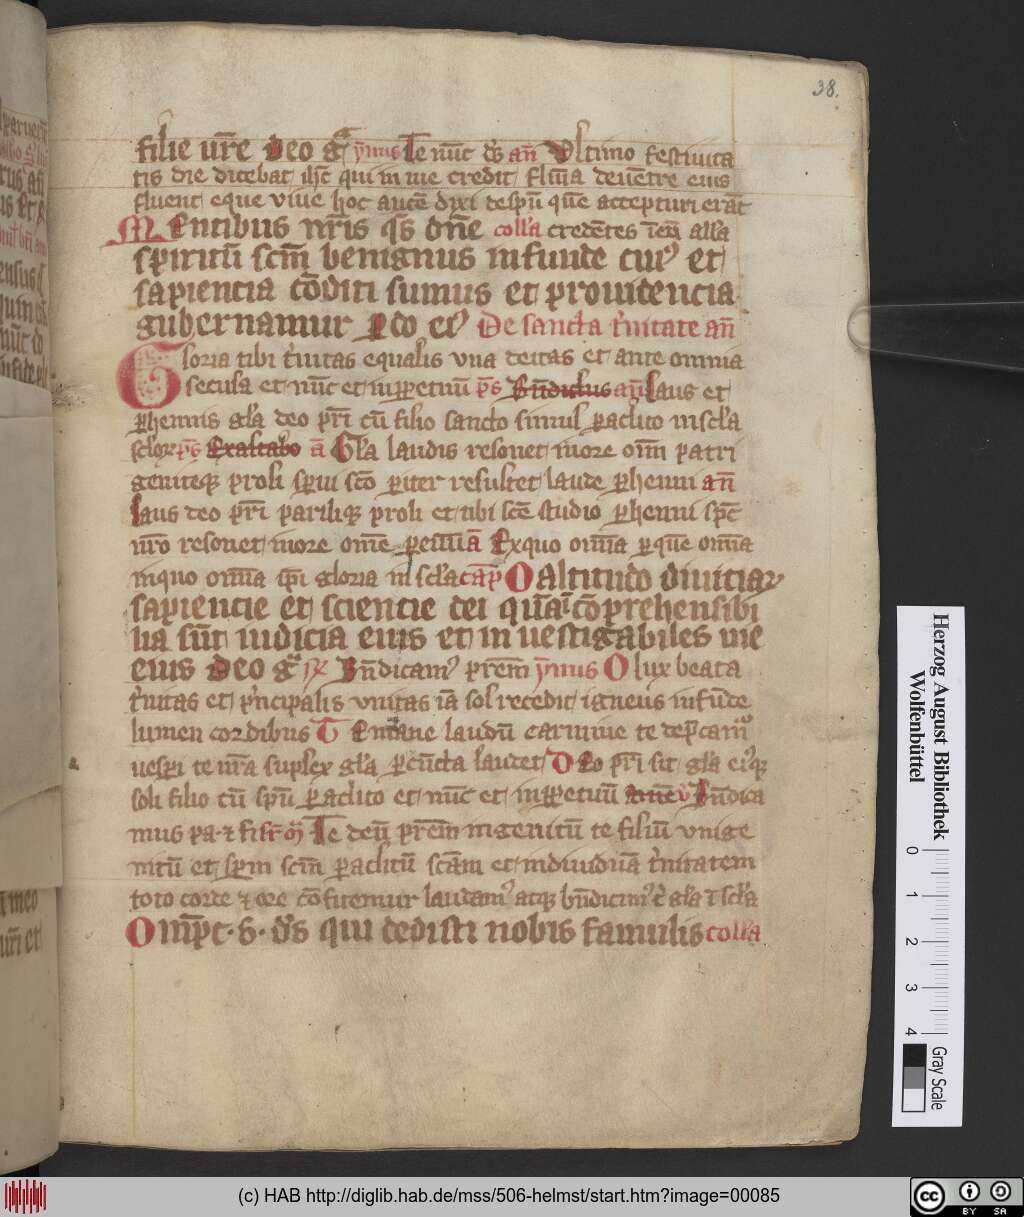 38.
filie vr̄e Deo gᷓ ẏmnus Te nūc ds̄ an̄ Vltimo festiuita
tis die dicebat ih̄c qui in me credit flūīa deuētre eius
fluent eque viue hoc autē dixi despū quē accepturi erāt
Mentibus nr̄is qs̄ dn̄e coll'a credētes īeū all'a
spiritū scm̄ benignus infunde cui9 et
sapiencia cōditi sumus et prouidencia
gubernamur Pdo ei9 De sancta t'nitate an̄
Gloria tibi t'nitas equalis vna deitas et ante omnia
secula et nūc et inppetuū ps̄ Bn̄dictus an̄ Laus et
phennis gl'a deo pr̄i cū filio sancto simul paclito inscl'a
sclor̄ ps̄ Exaltabo ā Gl'a laudis resonet in ore om̄ patri
geniteq3 proli spiu scō piter resultet laude phenni an̄
Laus deo pr̄i pariliq3 proli et tibi scē studio phenni spc̄
nr̄o resonet in ore om̄e peuū ā Exquo om̄ia p quē om̄ia
inquo om̄ia ipī gloria in scl'a cap̄ O altitudo diuiciar
sapiencie et sciencie dei quā īcōprehensibi
lia sūt iudicia eius et in uestigabiles uie
eius Deo gᷓ ꝶ Bn̄dicam9 prem̄ ẏmnus O lux beata
t'nitas et p'ncipalis vnitas iā sol recedit igneus infūde
lumen cordibus T e mane laudū carmine te dep̄cam9
uespi te nr̄a suplex gl'a p cūcta laudet Deo pr̄i sit gl'a ei9q3
soli filio cū spū paclito et nūc et inppetuū amē v̄ Bn̄dica
mus pa. ⁊ fi Te deū prem̄ ingenitū te filiū vnige
nitū et spm scm̄ paclitū scām et indiuiduā t'nitatem
toto corde ⁊ ore cōfitemur laudam9 atq3 bn̄dicim9 t' gl'a ī scl'a
Omp̄c. s. ds̄ qui dedisti nobis famulis coll'a
Herzog August Bibliothek
Wolfenbüttel
0 1 2 3 4
Gray Scale
(c) HAB http://diglib.hab.de/mss/506-helmst/start.htm?image=00085
cc BY SA